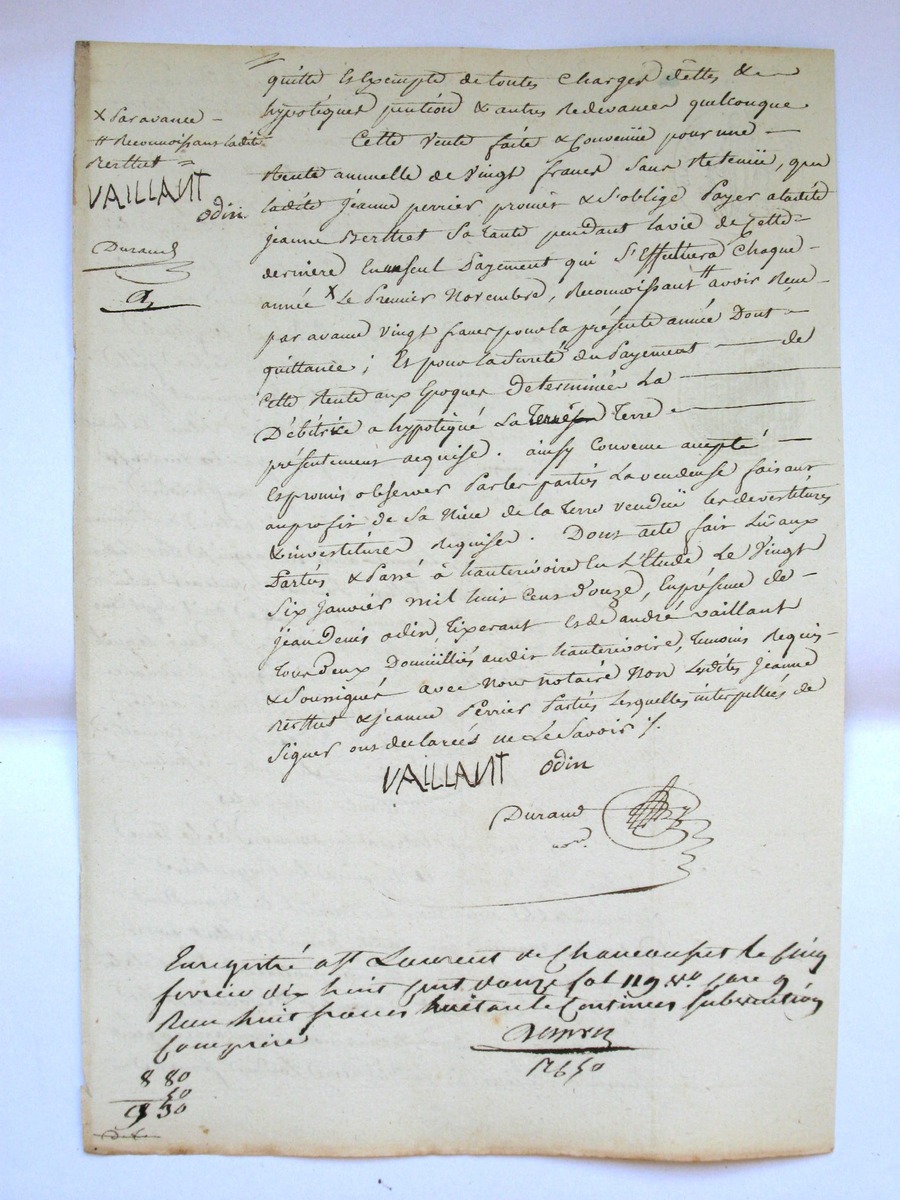 quitte et Exempte de toutes Charges dettes &
hypotéques pention & autres Redevances quelconque
Cette vente faite & Convenüe pour une
Rente annuelle de vingt francs Sans Retenüe, que
ladite jeanne perrier promet & S'oblige Payer a ladite
jeanne Berthet Sa tante pendant la vie de Cette
derniere En un Seul Payement qui S'Effectuera Chaque
année x Le Premier Novembre, Reconnoissant # avoir Reçu
par avance vingt francs pour la présente année Dont
quittance; Et pour la Sureté du Payement de
Cette Rente aux Epoques Determinées La
Débitrice a hypotiqué La Terre
présentement acquise. ainsy Convenu accepté
Et promis observer Par les parties La vendeuse faisant
au profit de Sa Niece de la terre vendüe les devestitures
& investitures Requises. Dont acte fait Lû aux
Parties & Passé à hauterivoire En L'Etude Le vingt
Six janvier mil huit Cent douze, En présence de
jean Denis odin, tixerant Et de andré vaillant
tous deux Domiciliés audit hauterivoire, temoins Requis
& Soussignés avec Nous notaire Non Lesdites jeanne
Berthet & jeanne Perrier Parties lesquelles interpellées de
Signer ont declarées ne Le Savoir ./.
VAILLANT odin
Durand
not.re
x Par avance
# Reconnoissant ladite
Berthet
VAILLANT
odin
Durand
Enregistré a St Laurent de Chamousset le cinq
fevrier dix huit cent douze fol 119 Vo Case 9
Recu huit francs huitante Centimes Subvention
Comprise
8 80
50
9 30